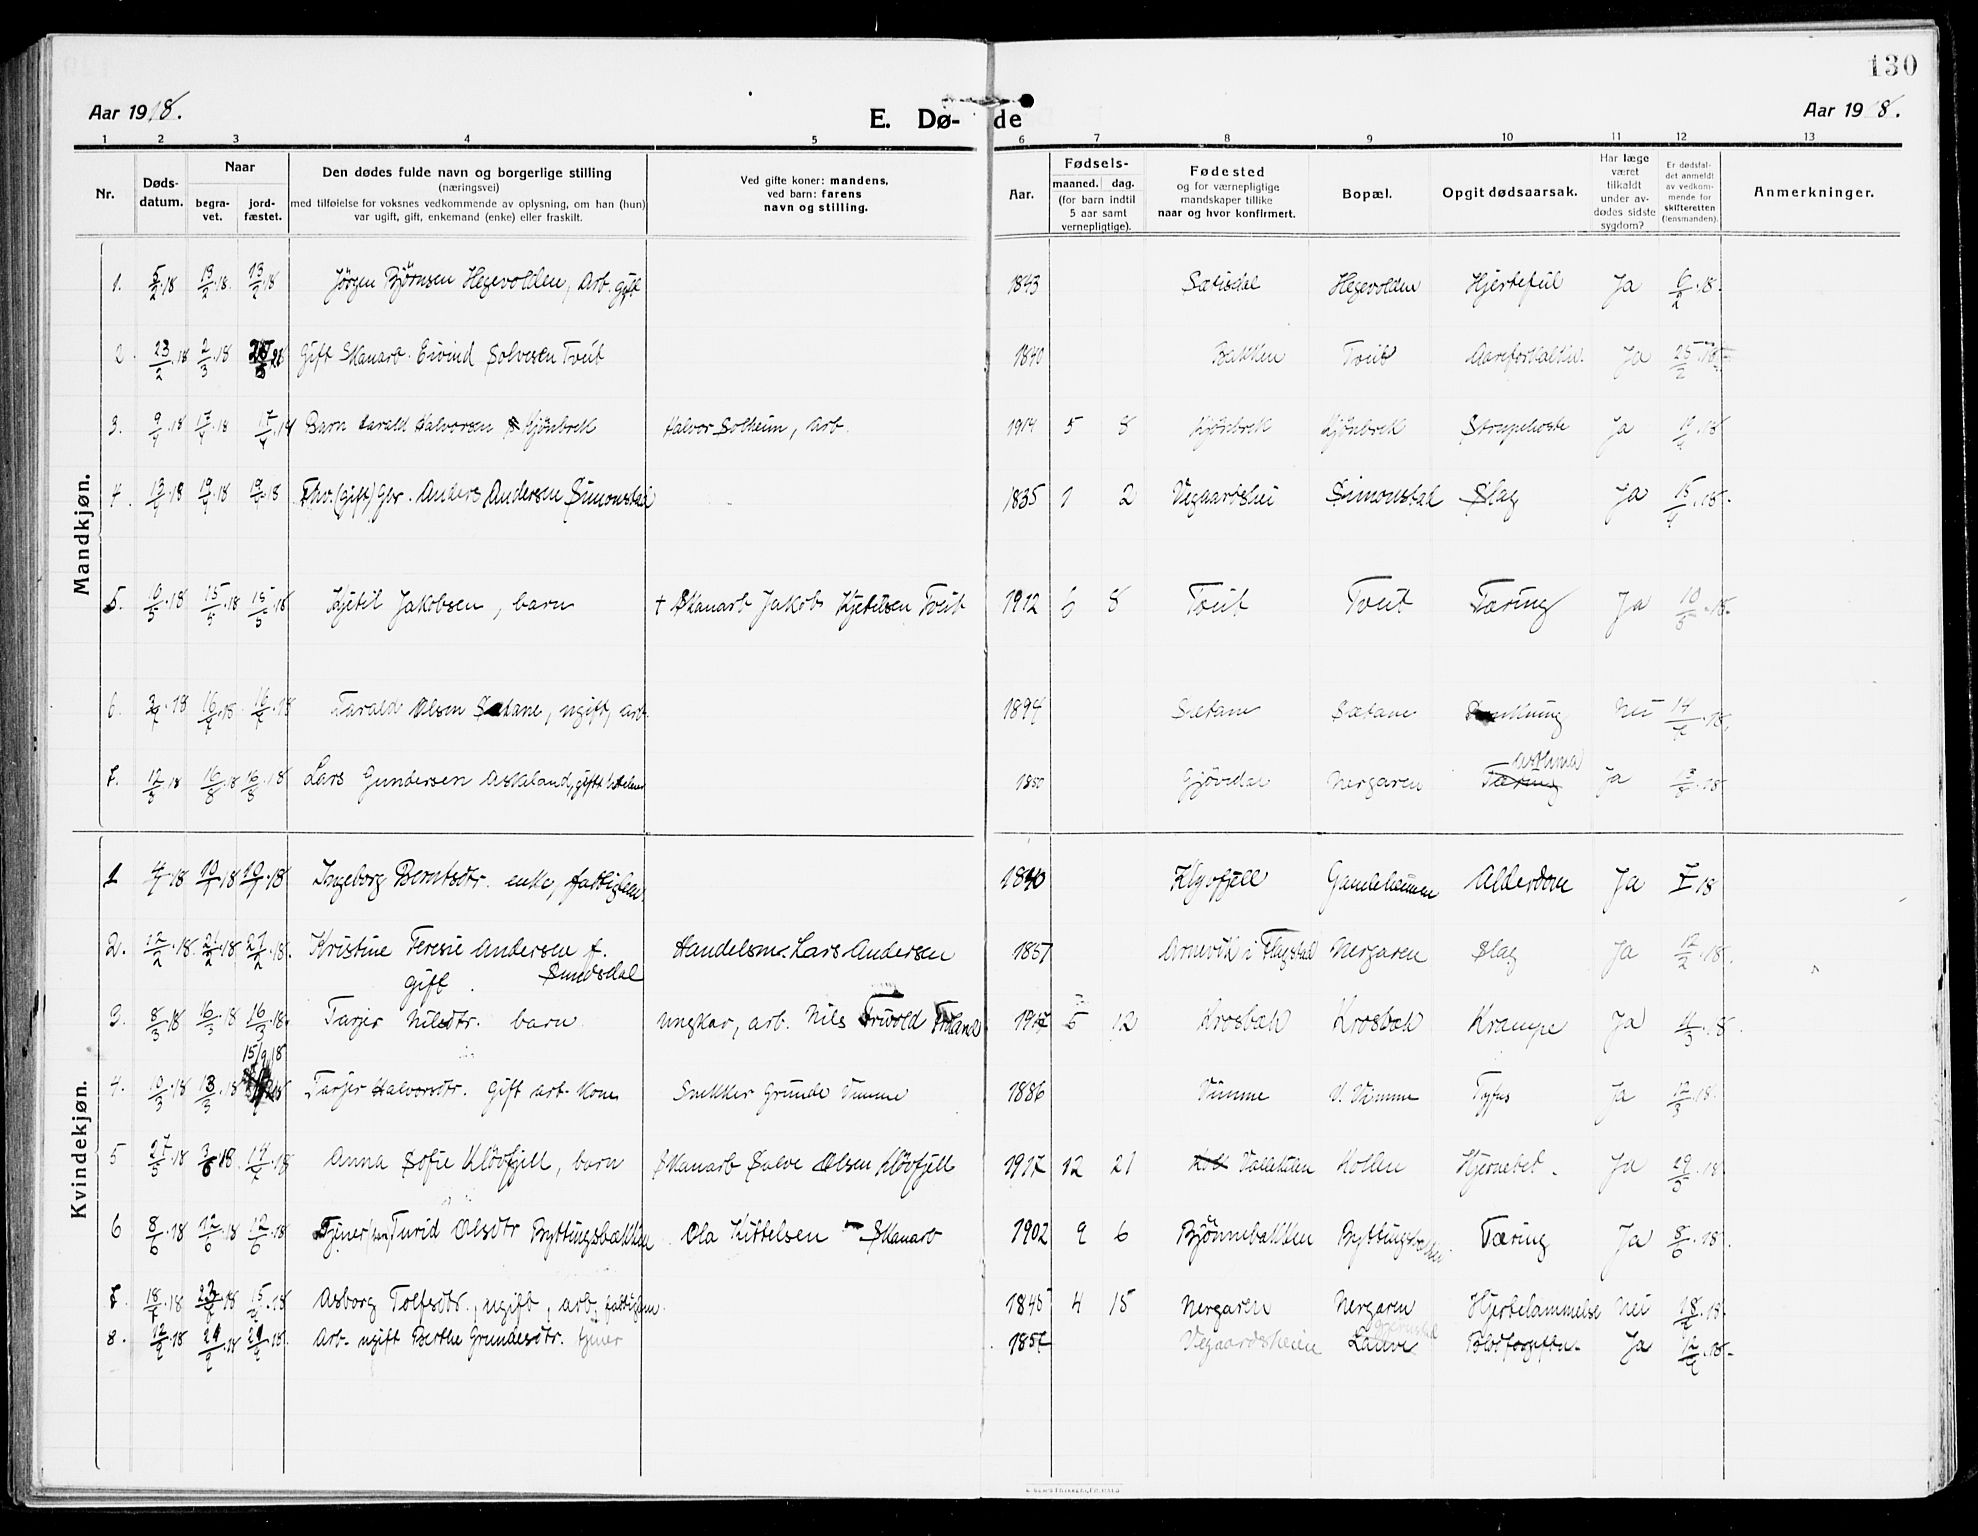 130
Aar 1918.
E. Dø- de
Aar 1918.
1 2 3 4 5 6 7 8 9 10 11 12 13
Nr.
Døds-datum.
Naar
begra-vet.
jord-fæstet.
Den dødes fulde navn og borgerlige stilling
(næringsvei)
med tilføielse for voksnes vedkommende av oplysning, om han (hun)
var ugift, gift, enkemand (enke) eller fraskilt.
Ved gifte koner: mandens,
ved barn: farens
navn og stilling.
Aar.
Fødsels-
maaned. dag.
(for barn indtil
5 aar samt
vernepligtige).
Fødested
og for værnepligtige
mandskaper tillike
naar og hvor konfirmert.
Bopæl.
Opgit dødsaarsak.
Har læge
været
tilkaldt
under av-
dødes sidste
sygdom?
Er dødsfal-
det anmeldt
av vedkom-
mende for
skifteretten
(lensmanden).
Anmerkninger.
Mandkjøn.
1. 5/2 18 13/2 18. 13/2 18 Jørgen Bjørnsen Hegevolden, Arb. gift 1843 Sætisdal Hegevolden Hjertefeil Ja 6/2 18.
2. 23/2 18 2/3 18 Gift Skanarb. Eivind Solvesen Tveit 1840 Bakken Tveit Aareforkalkn. Ja 25/2 18
3. 9/4 18 17/4 18 17/4 Barn Harald Halvorsen Kjønbrek Halvor Solheim, arb. 1914 5 8 Kjønbrek Kjønbrek Strupehoste Ja 18
4. 13/4 18 19/4 18 19/4 18 Fhv. (gift) Gbr. Anders Andersen Simonstad 1835 1 2 Vegaardshei Simonstad Slag Ja 15/4 18.
5. 18 15/5 18 15/5 18 Kjetil Jakobsen, barn † Skanarb Jakob Kjetilsen Tveit 1912 6 8 Tveit Tveit Tæring Ja 10/5 18.
6. 18 16/7 18 16/7 18 Tarald Olsen Sætane, ugift, arb. 1894 Sætane Sætane Nei 14/7 18.
7. 12/8 18 16/8 18 16/8 18 Lars Gundersen Askeland, gift 1850 Gjøvdal Nergaren Tæring Asthma Ja 13/8 18
Kvindekjøn.
1 4/1 18 10/1 18 10/1 18 Ingeborg Berntsdtr. enke, fattiglem. 1840 Klyvfjell Gamleheimen Alderdom Ja 18
2. 12/2 18. 21/2 18 21/2 18. Kristine Teresie Andersen f.
gift. Sundsdal Handelsm. Lars Andersen 1857 Arnevik i Flugstad Nergaren Slag Ja 12/2 18.
3. 8/3 18 16/3 18 16/3 18. Tarjer Nilsdtr. barn ungkar, arb. Nils Trivold 1917 5 12 Krosbæk Krosbæk Krampe Ja 11/3 18.
15/9 18
4. 10/3 18 13/3 18 Tarjer Halvorsdtr. Gift arb. kone Snekker Grunde Vimme 1886 Vimme V. Vimme Tyfus Ja 12/3 18.
5 27/5 18 3/6 18 14/7 18 Anna Sofie Kløvfjell, barn Skanarb Salve Olsen Kløvfjell 1917 12 21 Vallekilen Kollen Hjernebet. Ja 29/5 18
6 8/6 18 12/6 18 12/6 18 Tjener Turid Olsdtr Byttingsbakken Ola Kittelsen Skanarb 1902 9 6 Bjønnebakken Byttingsbakken Tæring Ja 8/6 18.
7. 18/7 18 23/7 18 18 Asborg Tolfsdtr., ugift, arb. fattiglem. 1845 4 15 Nergaren Nergaren Hjertelammelse Nei 18/7 18.
8. 12/9 18 21/9 18 21/9 18. Arb. ugift Berthe Grundesdtr. tjener 1857 Vegaardsheien Lauve Blodforgiftn. Ja 12/9 18.